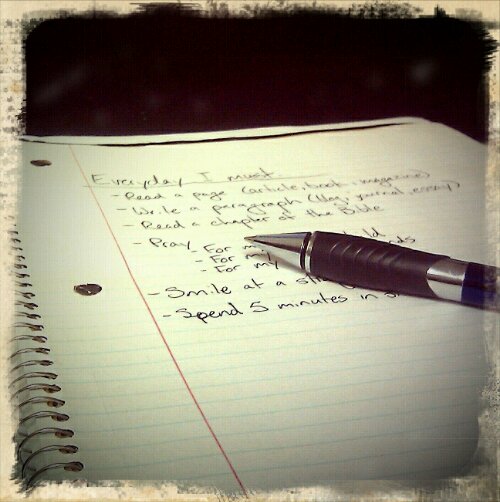 Everyday I must
- Read a page (article, book, magazine)
- Write a paragraph (blog, journal, essay)
- Read a chapter of the Bible
- Pray
- For my
- For my
- For my
- Smile at a
- Spend 5 minutes in